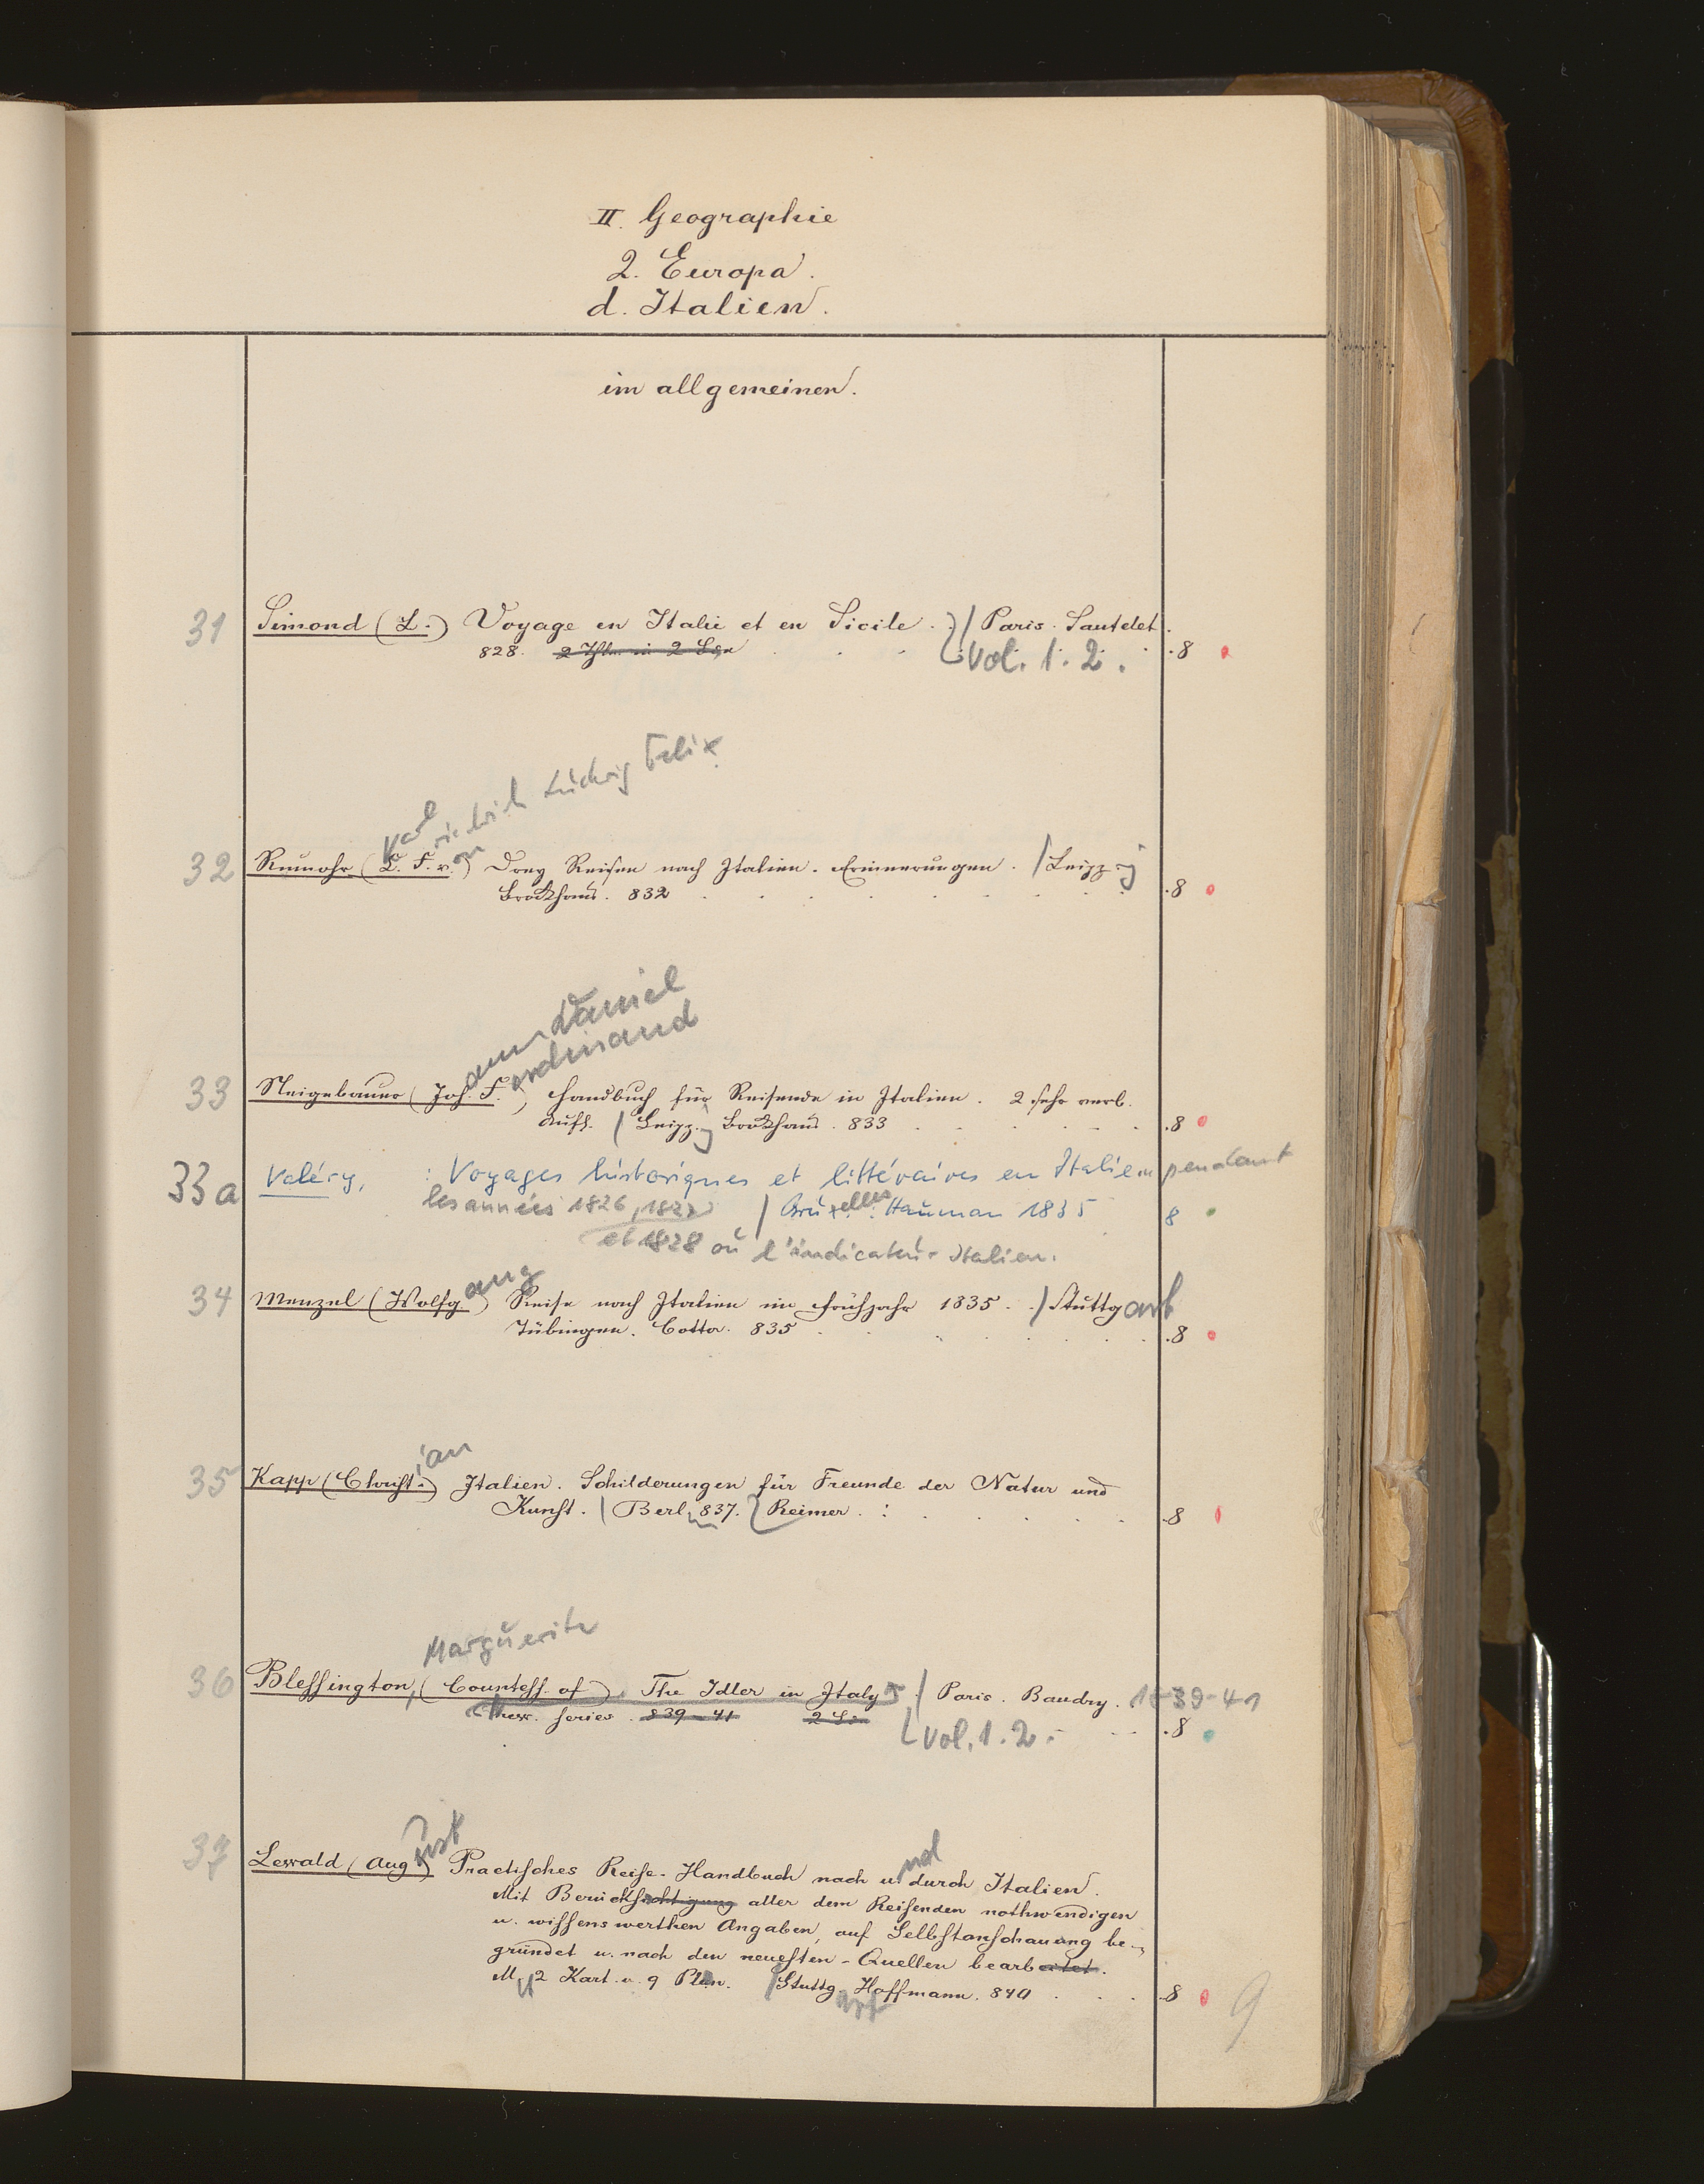 II. Geographie
2. Europa.
d. Italien.
im allgemeinen.
31 Simond (L.) Voyage en Italie et en Sicile. / Paris. Sautelet.
828. 2 in 2 Vol. 1. 2. .8
Karl Friedrich Ludwig Felix
32 Rumohr (C. F. v.on) Drey Reisen nach Italien. Erinnerungen. / Leipzig
Brockhaus. 832 .8
Daniel
33 Neigebauer (Joh.ann F.erdinand), Handbuch für Reisende in Italien. 2 sehr verb.
Aufl. / Leipz.g Brockhaus. 833 .8
33a Valéry, : Voyages historiques et littéraires en Italie pendant
les années 1826, 1827 / Bruxelles: Hauman 1835 8
et 1828 ou l'indicateur italien.
34 Menzel (Wolfg.ang) Reise nach Italien im Frühjahr 1835. / Stuttgart
Tübingen. Cotta. 835 .8
35 Kapp (Christ.ian) Italien. Schilderungen für Freunde der Natur und
Kunst. / Berlin 837. Reimer. .8
Marguerite
36 Blessington, (Countess of) The Idler in Italy / Paris. Baudry. 1839-41
series. 839-41 Vol. 1. 2. .8
37 Lewald (August) Practisches Reise-Handbuch nach und durch Italien.
Mit Berücksichtigung aller dem Reisenden nothwendigen
u. wissenswerthen Angaben, auf Selbstanschauung be-
gründet u. nach den neuesten Quellen bearbeitet.
M. 2 Kart. u. 9 Plan. / Stuttgart Hoffmann. 840 .8
9